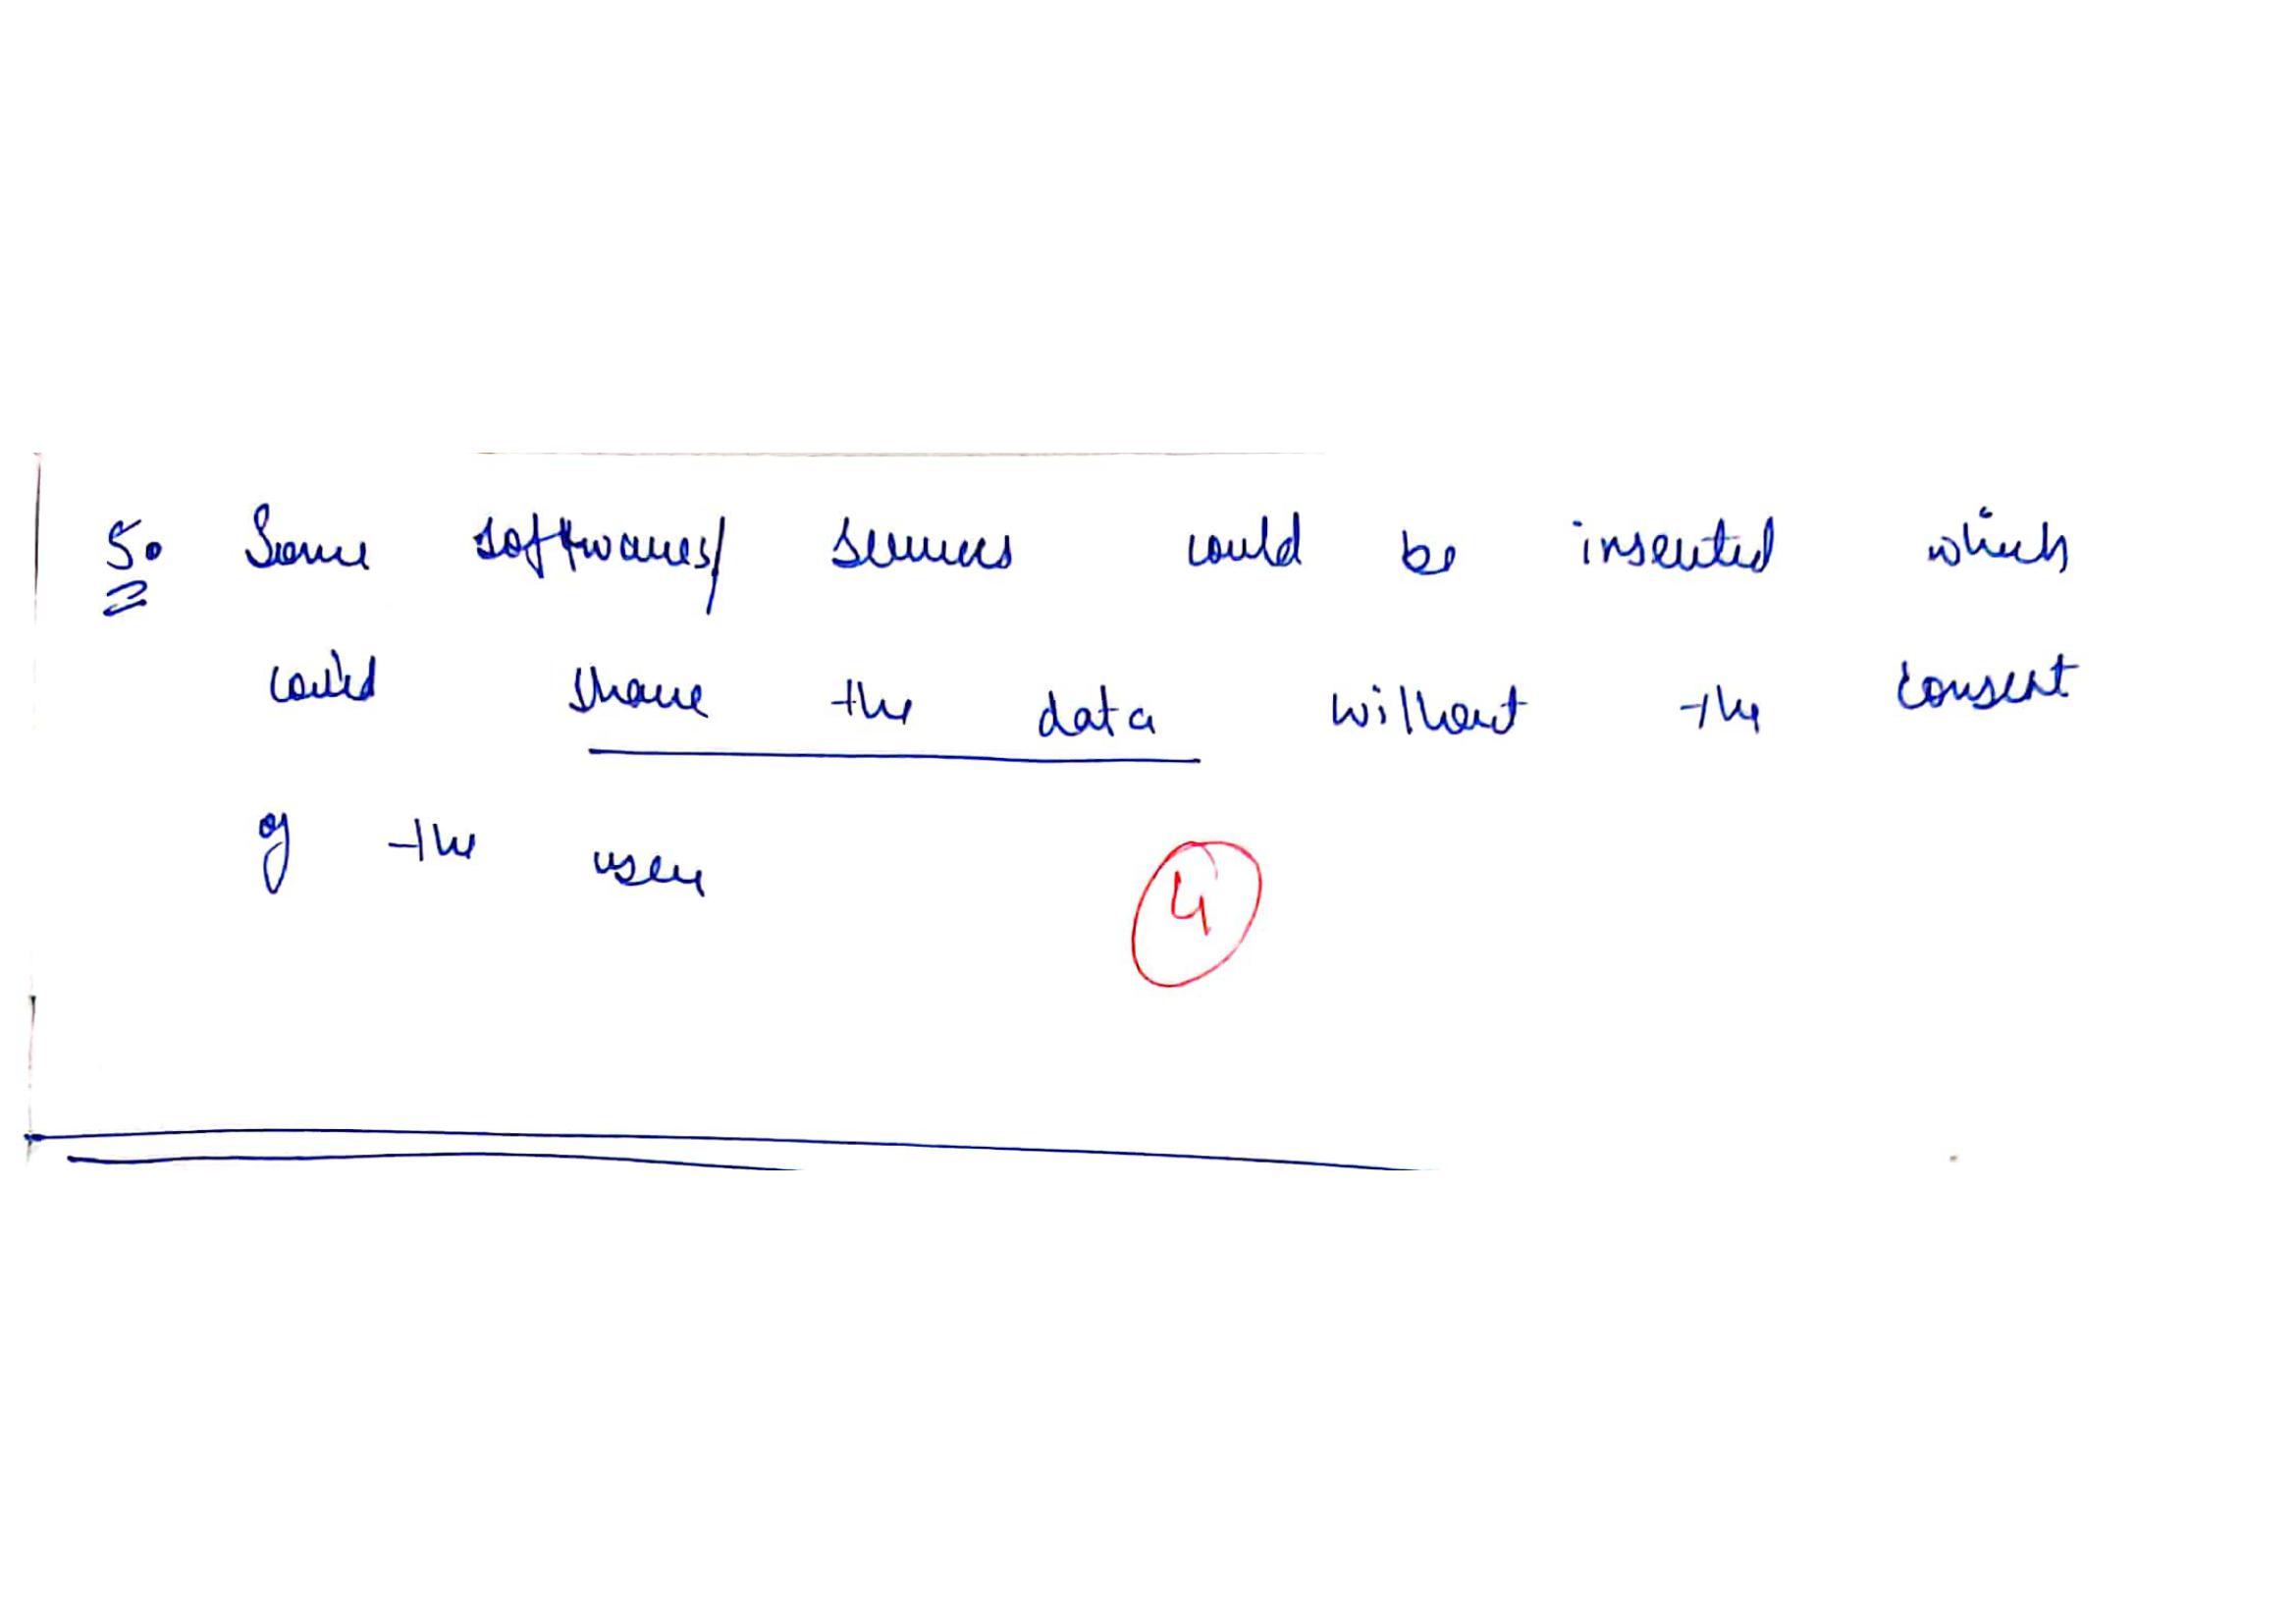 5. Some softwares/ services could be inserted which
could share the data without the consent
of the user
4